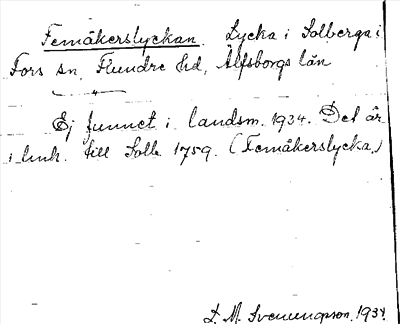 Femåkerslyckan. Lycka i Solberga i
Fors sn, Flundre hd, Älfsborgs län
Ej funnet i landsm. 1934. Det är
i link. till Solb. 1759. (Femåkerslycka.)
D. M. Svenungsson. 1934.